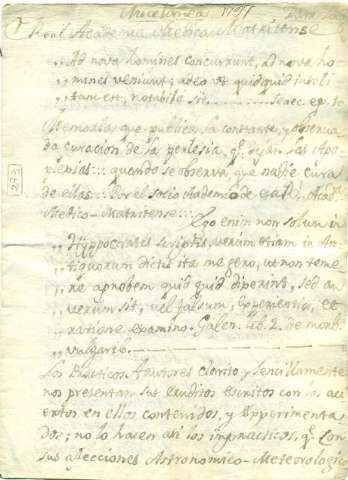 1791
Real Academia Medica Matritense
,, Ad nova homines concurrunt, ad nova ho-
,, mines veniunt; adeo ut quidquid insoli
,, tam est, notabile sit. Senec. ep.
Memorias que publica la constante, y observa
da curacion de la perlesia, q.e dejan las Apo-
plegias: quando se observa, que nadie cura
de ellas. Por el socio Academico de esta Acad.
Medico-Matritense:
Ego enim non solum in
,, Hyppocratis scriptis, verum etiam in An-
,, tiquorum dictis ita me gero, ut non teme
,, re aprobem quid quid diperint, sed an
,, verum sit, vel falsum, experientia, et
,, ratione examino. Galen. lib. 2. de morb.
,, vulgarib.
Los Practicos Autores clarito y sencillamente
nos presentam sus eruditos escritos con los aci
ertos en ellos contenidos, y experimenta
dos; no lo hacen asi los inpracticos, q.e con
sus afecciones Astronomico-Meteorologico
273